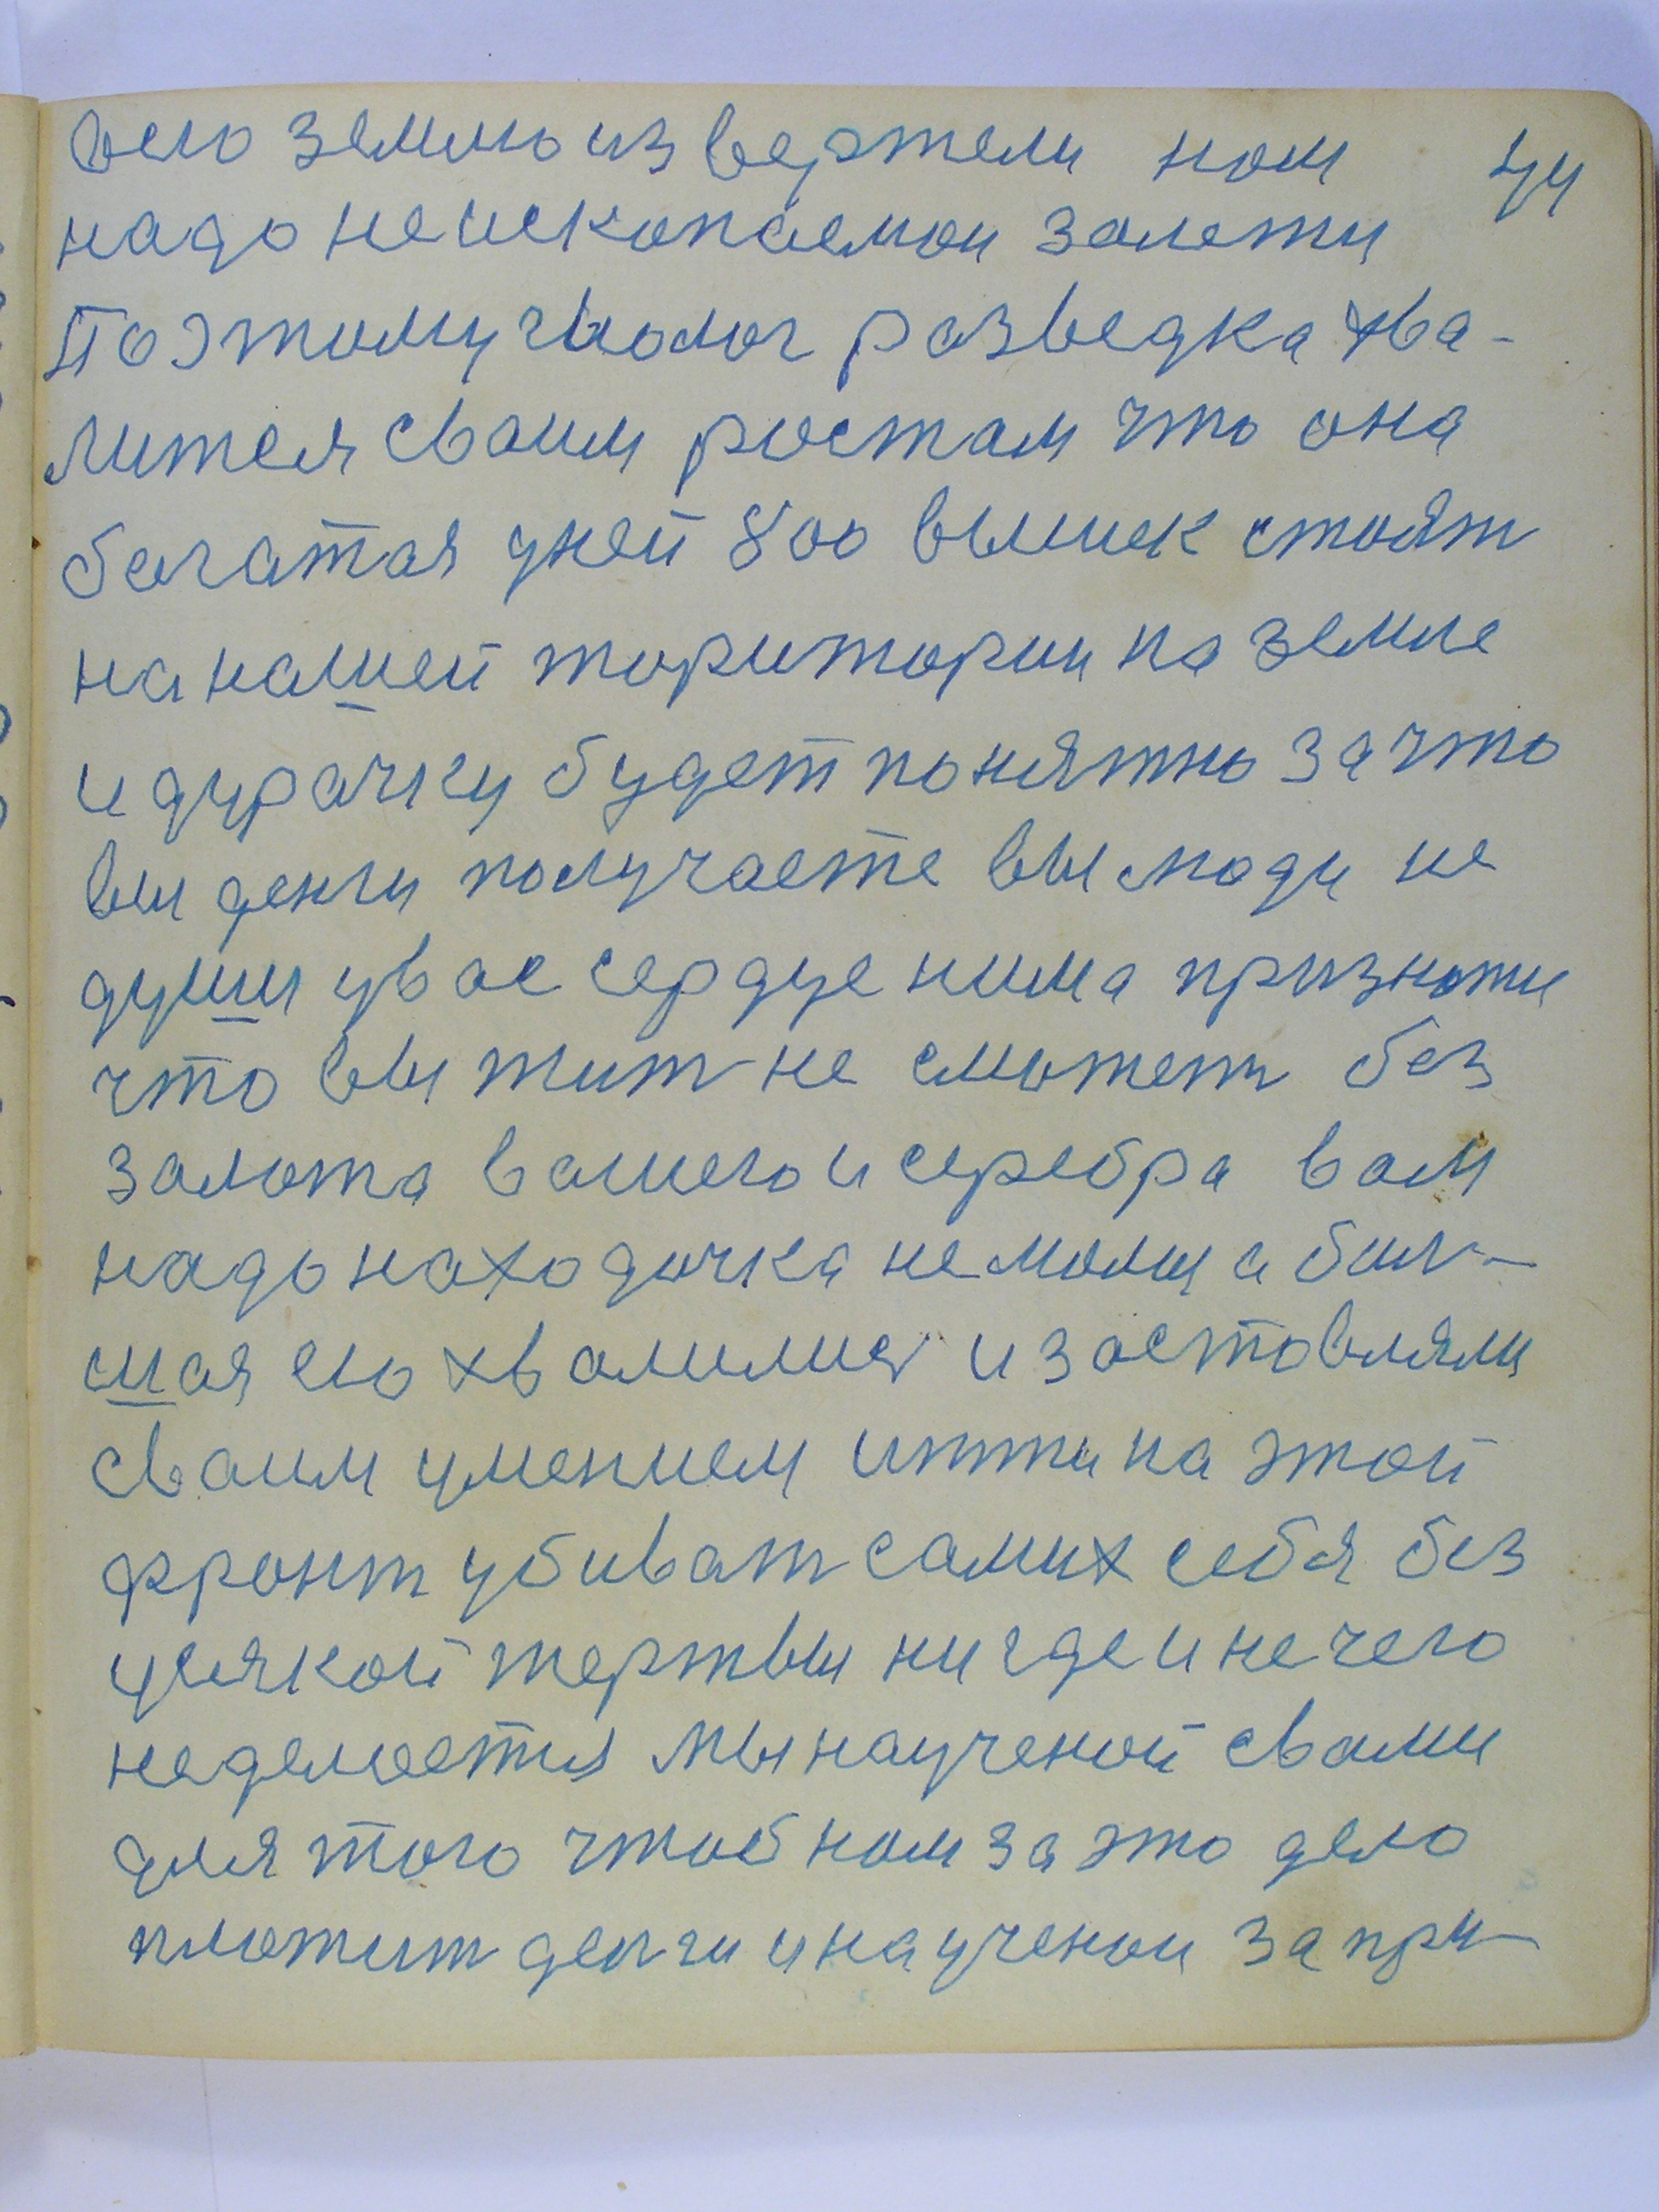 всю землю извертели нам 44
надо неископаемои залежи
Поэтому геолог разведка хва-
лится сваим ростам что она
богатая уней 800 вышек стоят
на нашей торитории на земле
и дурачку будет понятно за что
вы денги получаете вы люди не
души у вас сердце нима признати
что вы жит не сможете без
залота вашего и серебра вам
надо находочка не малая а бил-
шая ею хвалились и заставляли
сваим умением итти на этой
фронт убиват самих себя без
усякой жертвы ни где и нечего
неделается Мы научений свами
для того чтоб нам за это дело
платит денги и научении за при-